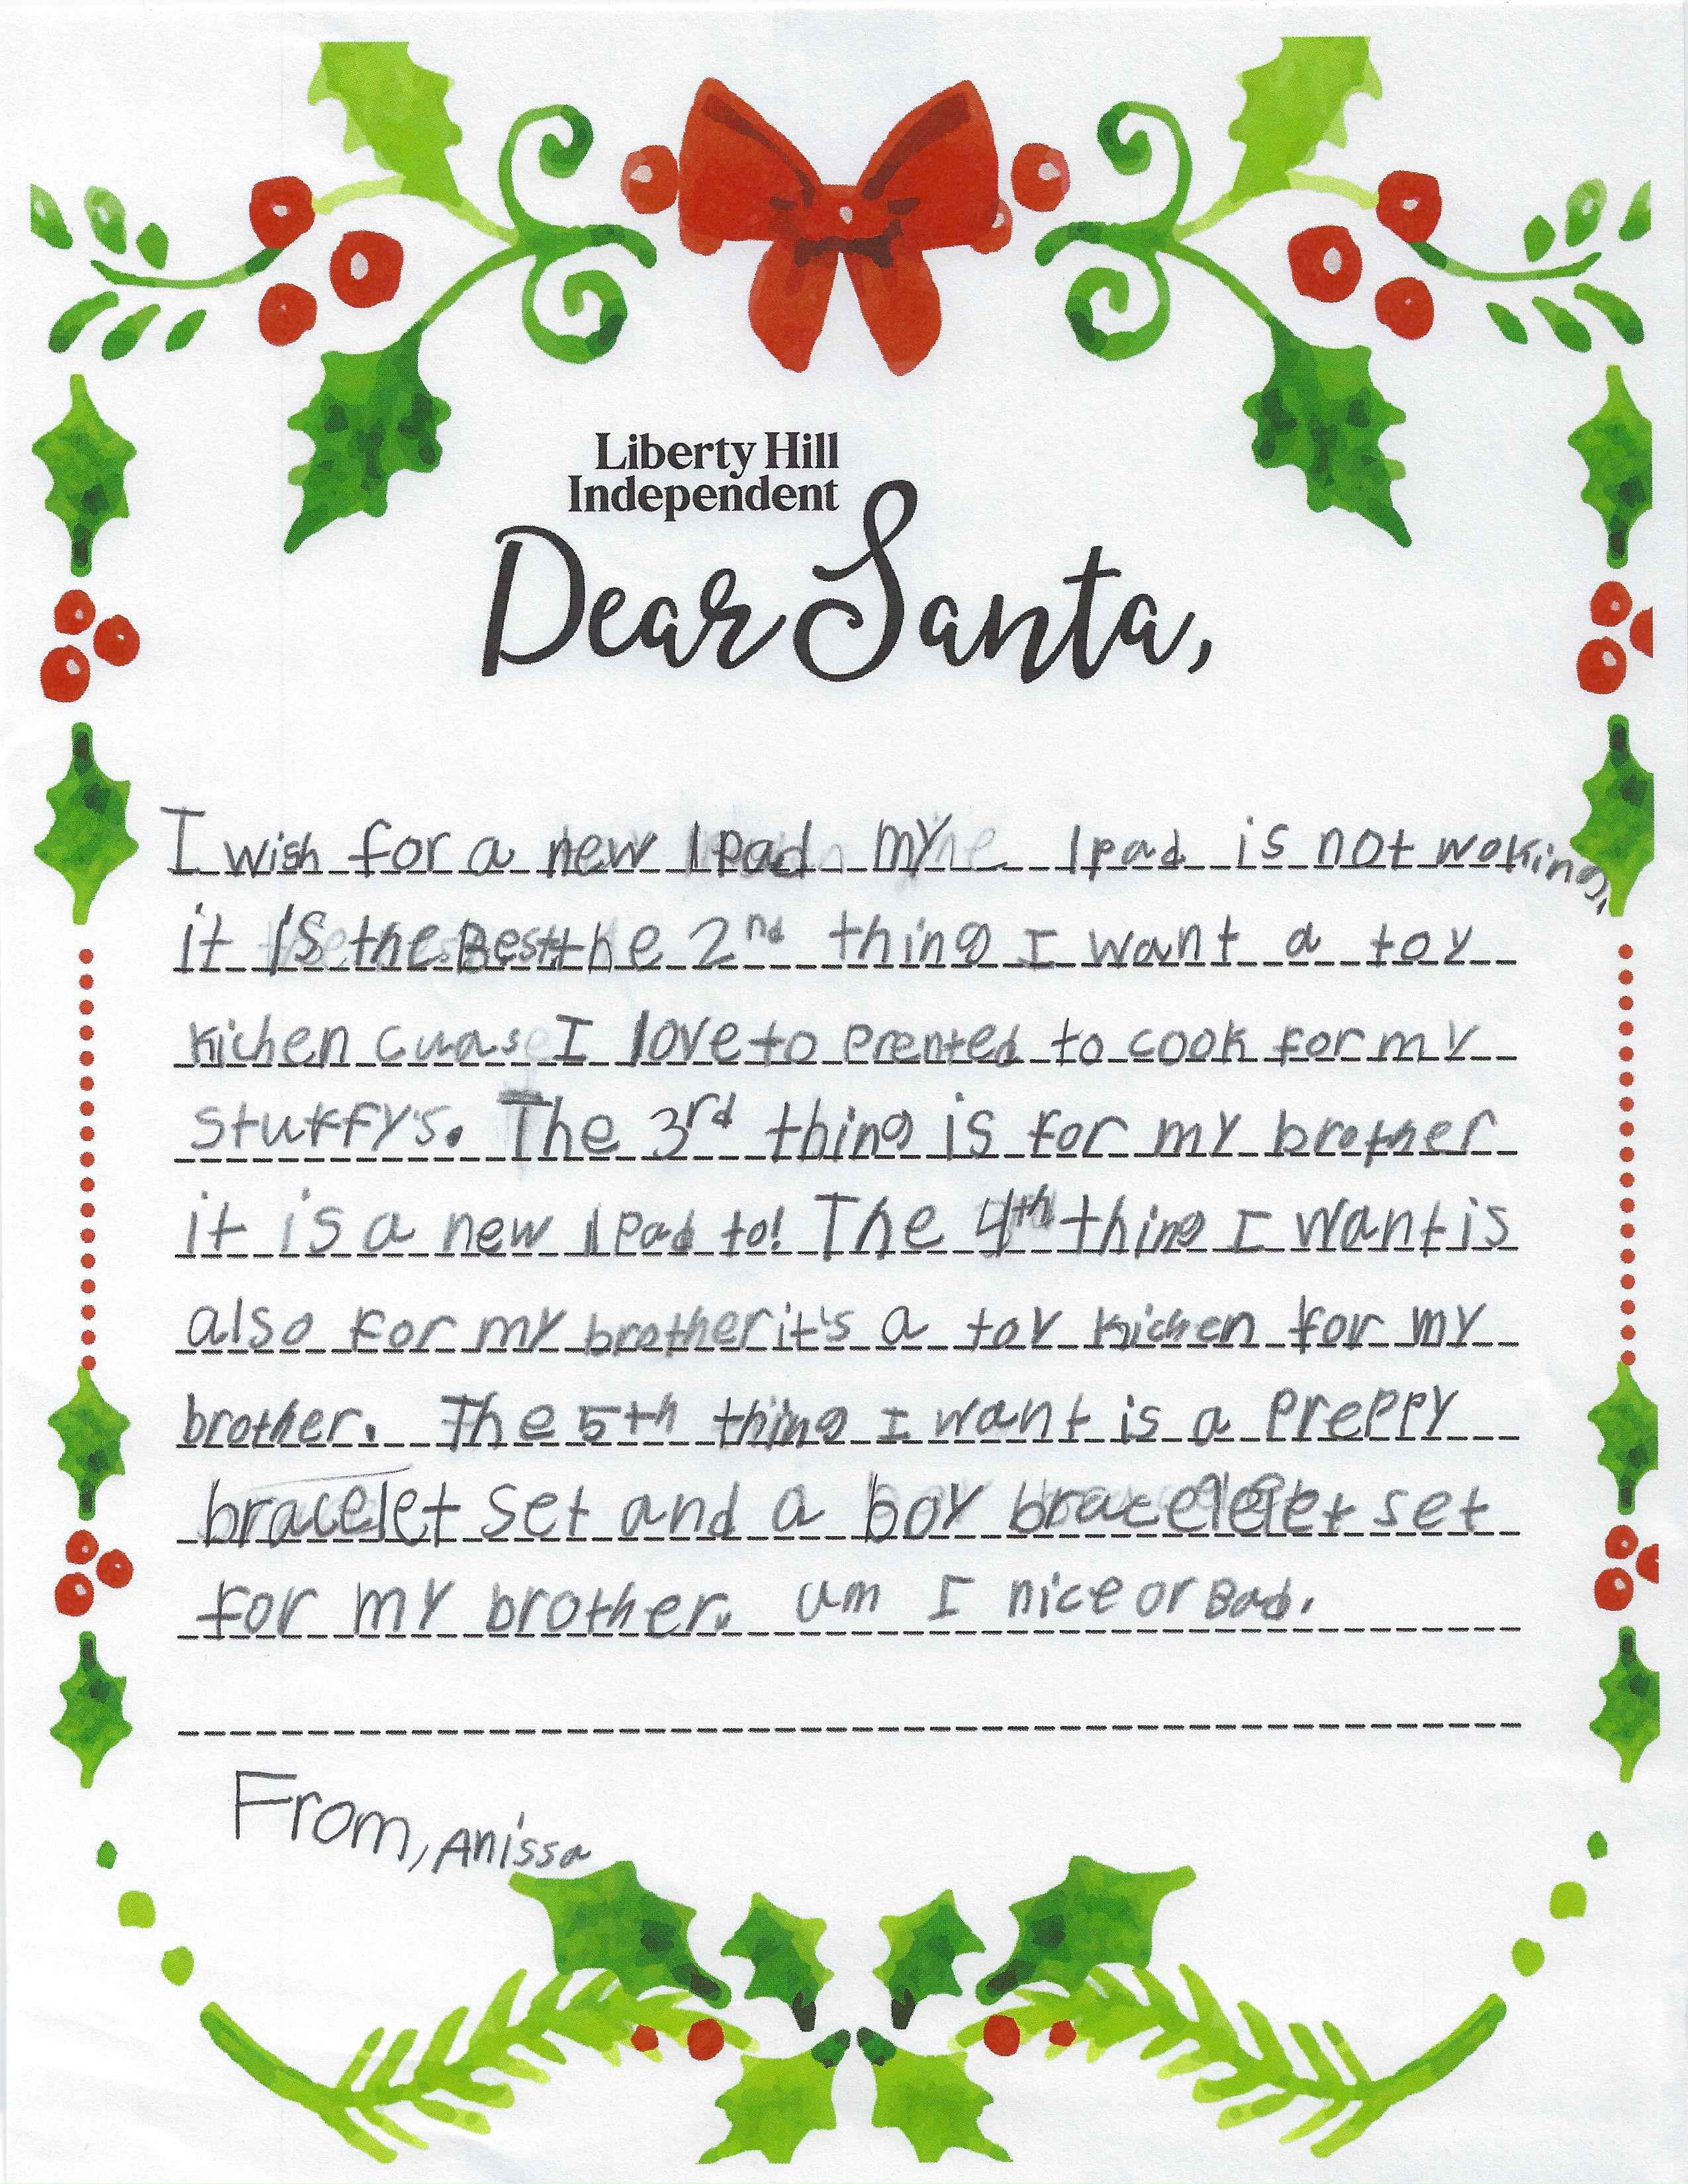 Liberty Hill
Independent
Dear Santa,
I wish for a new Ipad my Ipad is not woking.
it is the Best the 2nd thing I want a toy
kichen cuase I love to prented to cook for my
stuffy's. The 3rd thing is for my brother
it is a new Ipad to! The 4th thing I want is
also for my brother it's a toy kichen for my
brother. The 5th thing I want is a preppy
bracelet set and a boy set
for my brother. um I nice or Bad.
From, Anissa